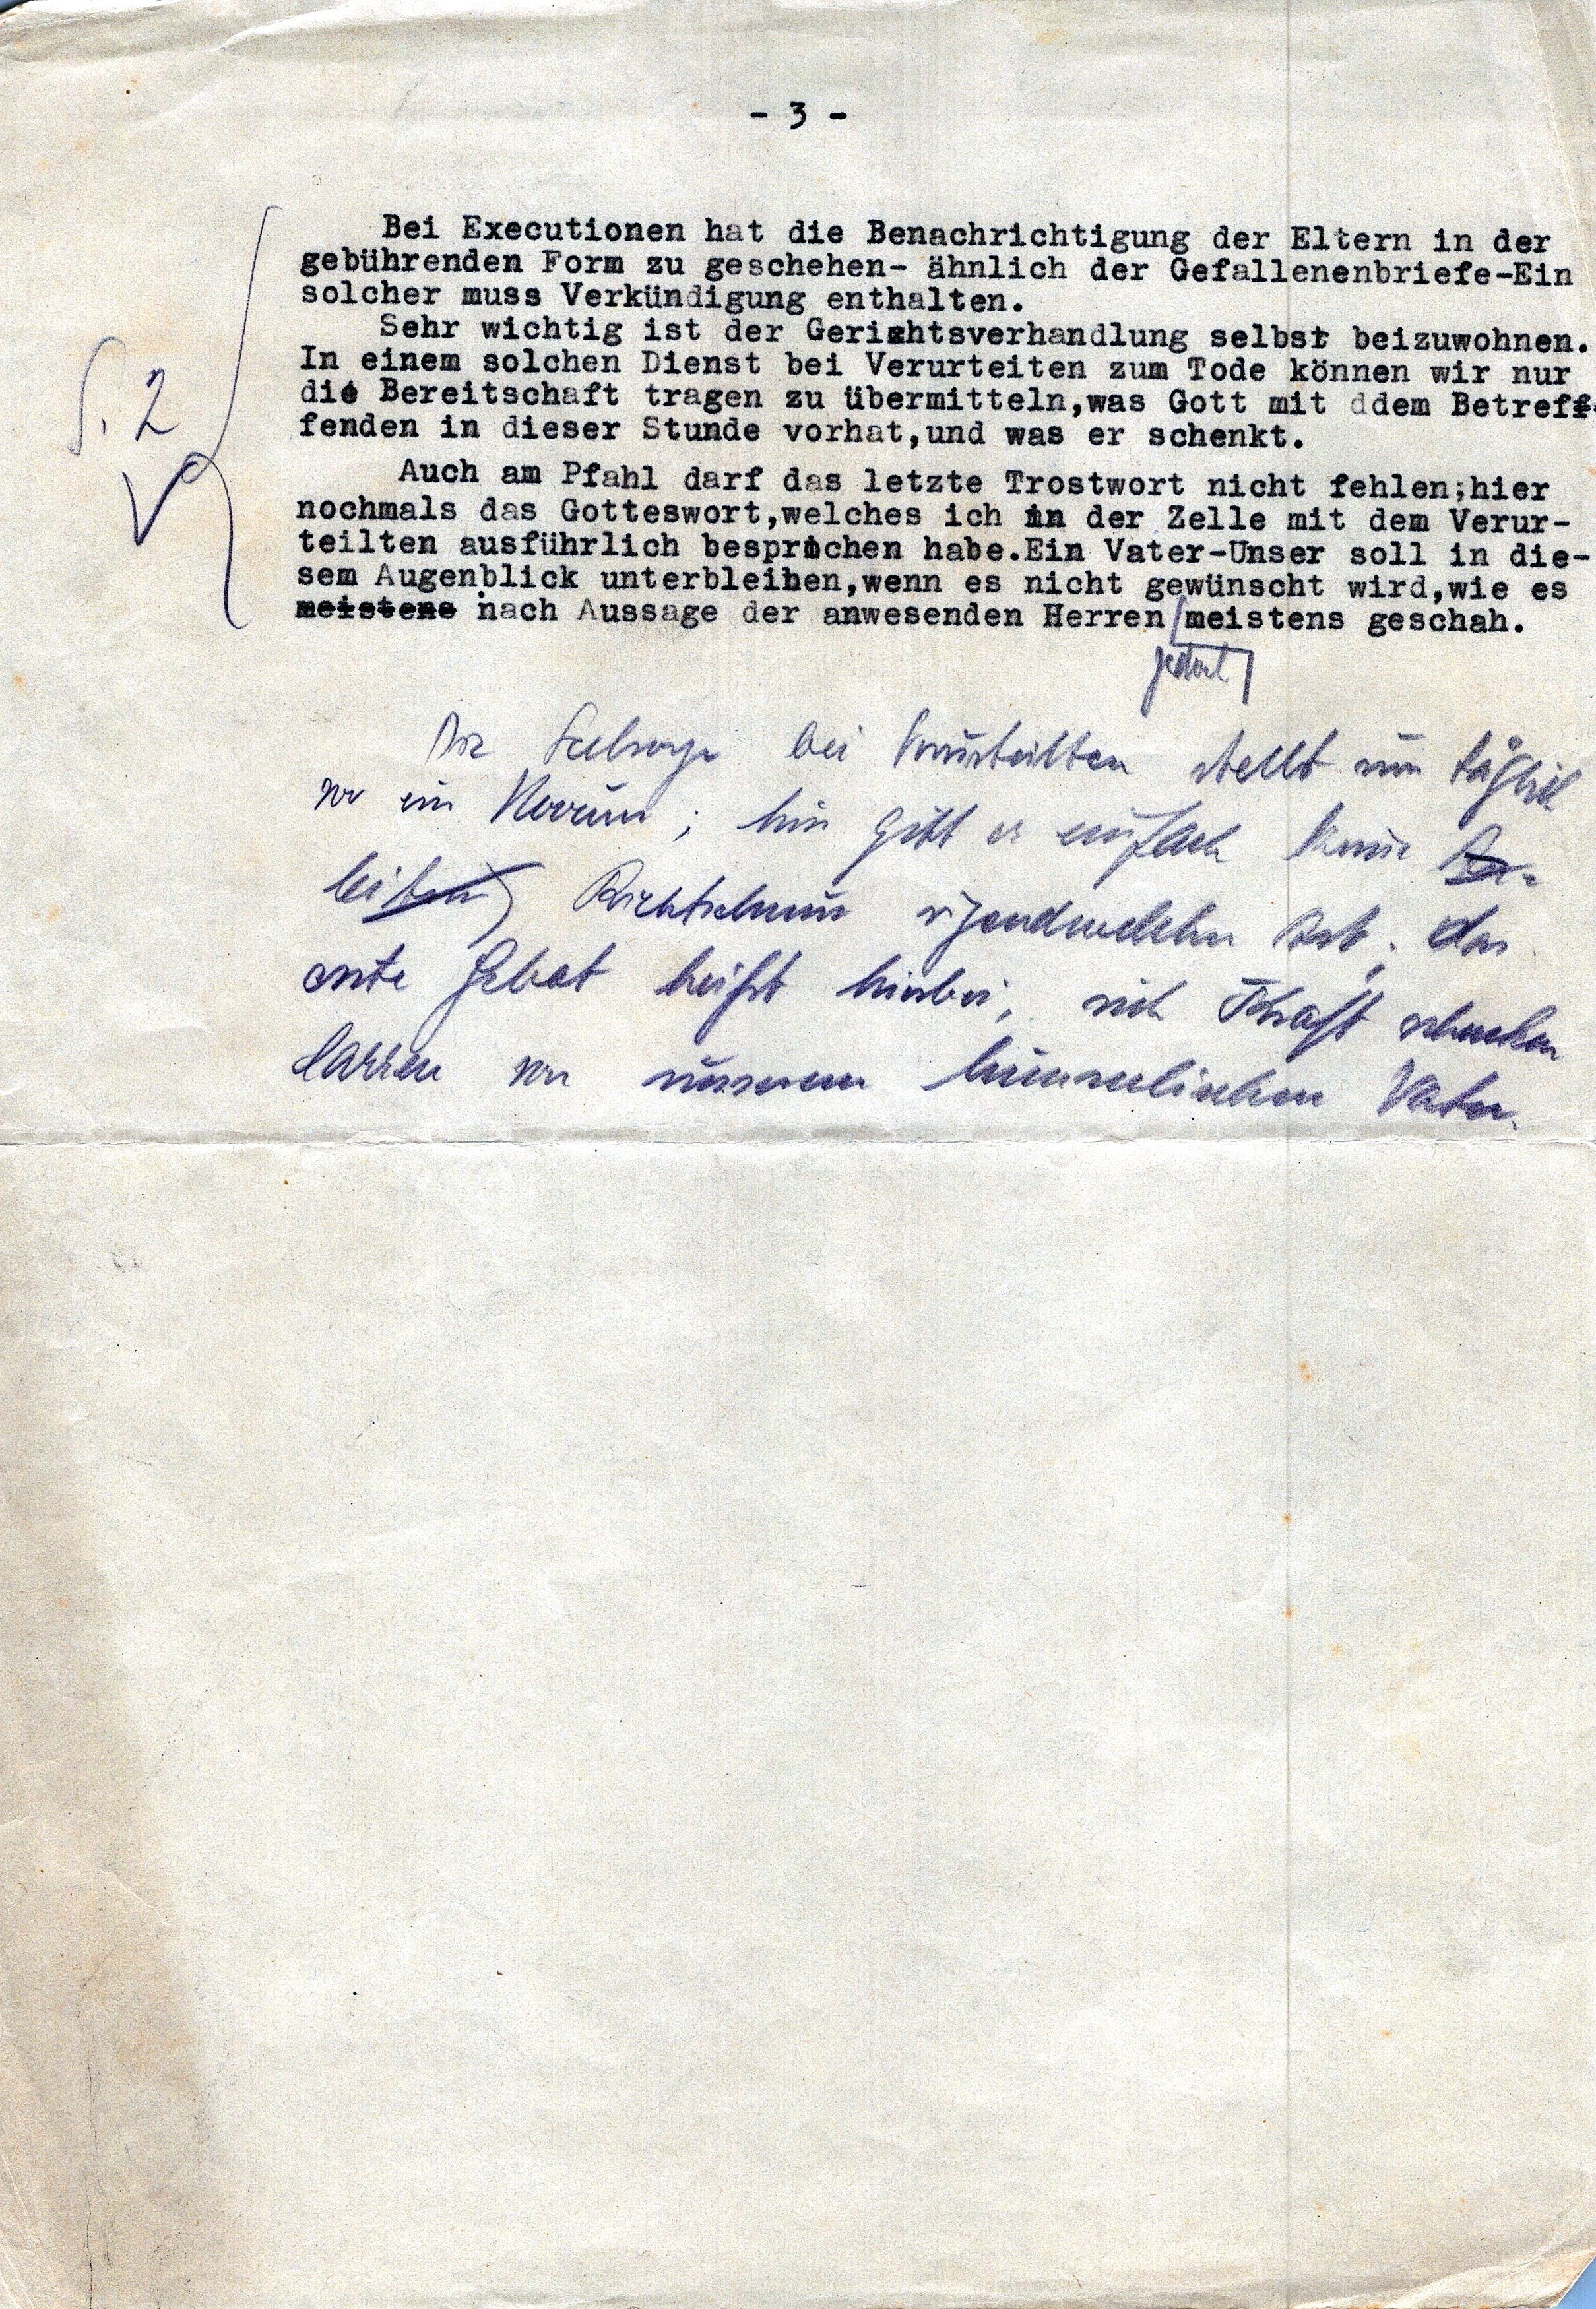 - 3 -
Bei Executionen hat die Benachrichtigung der Eltern in der
gebührenden Form zu geschehen- ähnlich der Gefallenenbriefe-Ein
solcher muss Verkündigung enthalten.
Sehr wichtig ist der Gerichtsverhandlung selbst beizuwohnen.
In einem solchen Dienst bei Verurteiten zum Tode können wir nur
die Bereitschaft tragen zu übermitteln,was Gott mit ddem Betreff-
fenden in dieser Stunde vorhat,und was er schenkt.
S. 2
Auch am Pfahl darf das letzte Trostwort nicht fehlen;hier
nochmals das Gotteswort,welches ich in der Zelle mit dem Verur-
teilten ausführlich besprochen habe.Ein Vater-Unser soll in die-
sem Augenblick unterbleiben,wenn es nicht gewünscht wird,wie es
meistens nach Aussage der anwesenden Herren meistens geschah.
jedoch
Die Seelsorge bei Verurteilten stellt uns täglich
vor ein Novum; hier gibt es einfach keine An-
leitung Richtschnur irgendwelcher Art. Das
erste Gebot heißt hierbei, sich Kraft schenken
lassen von unserem himmlischen Vater.